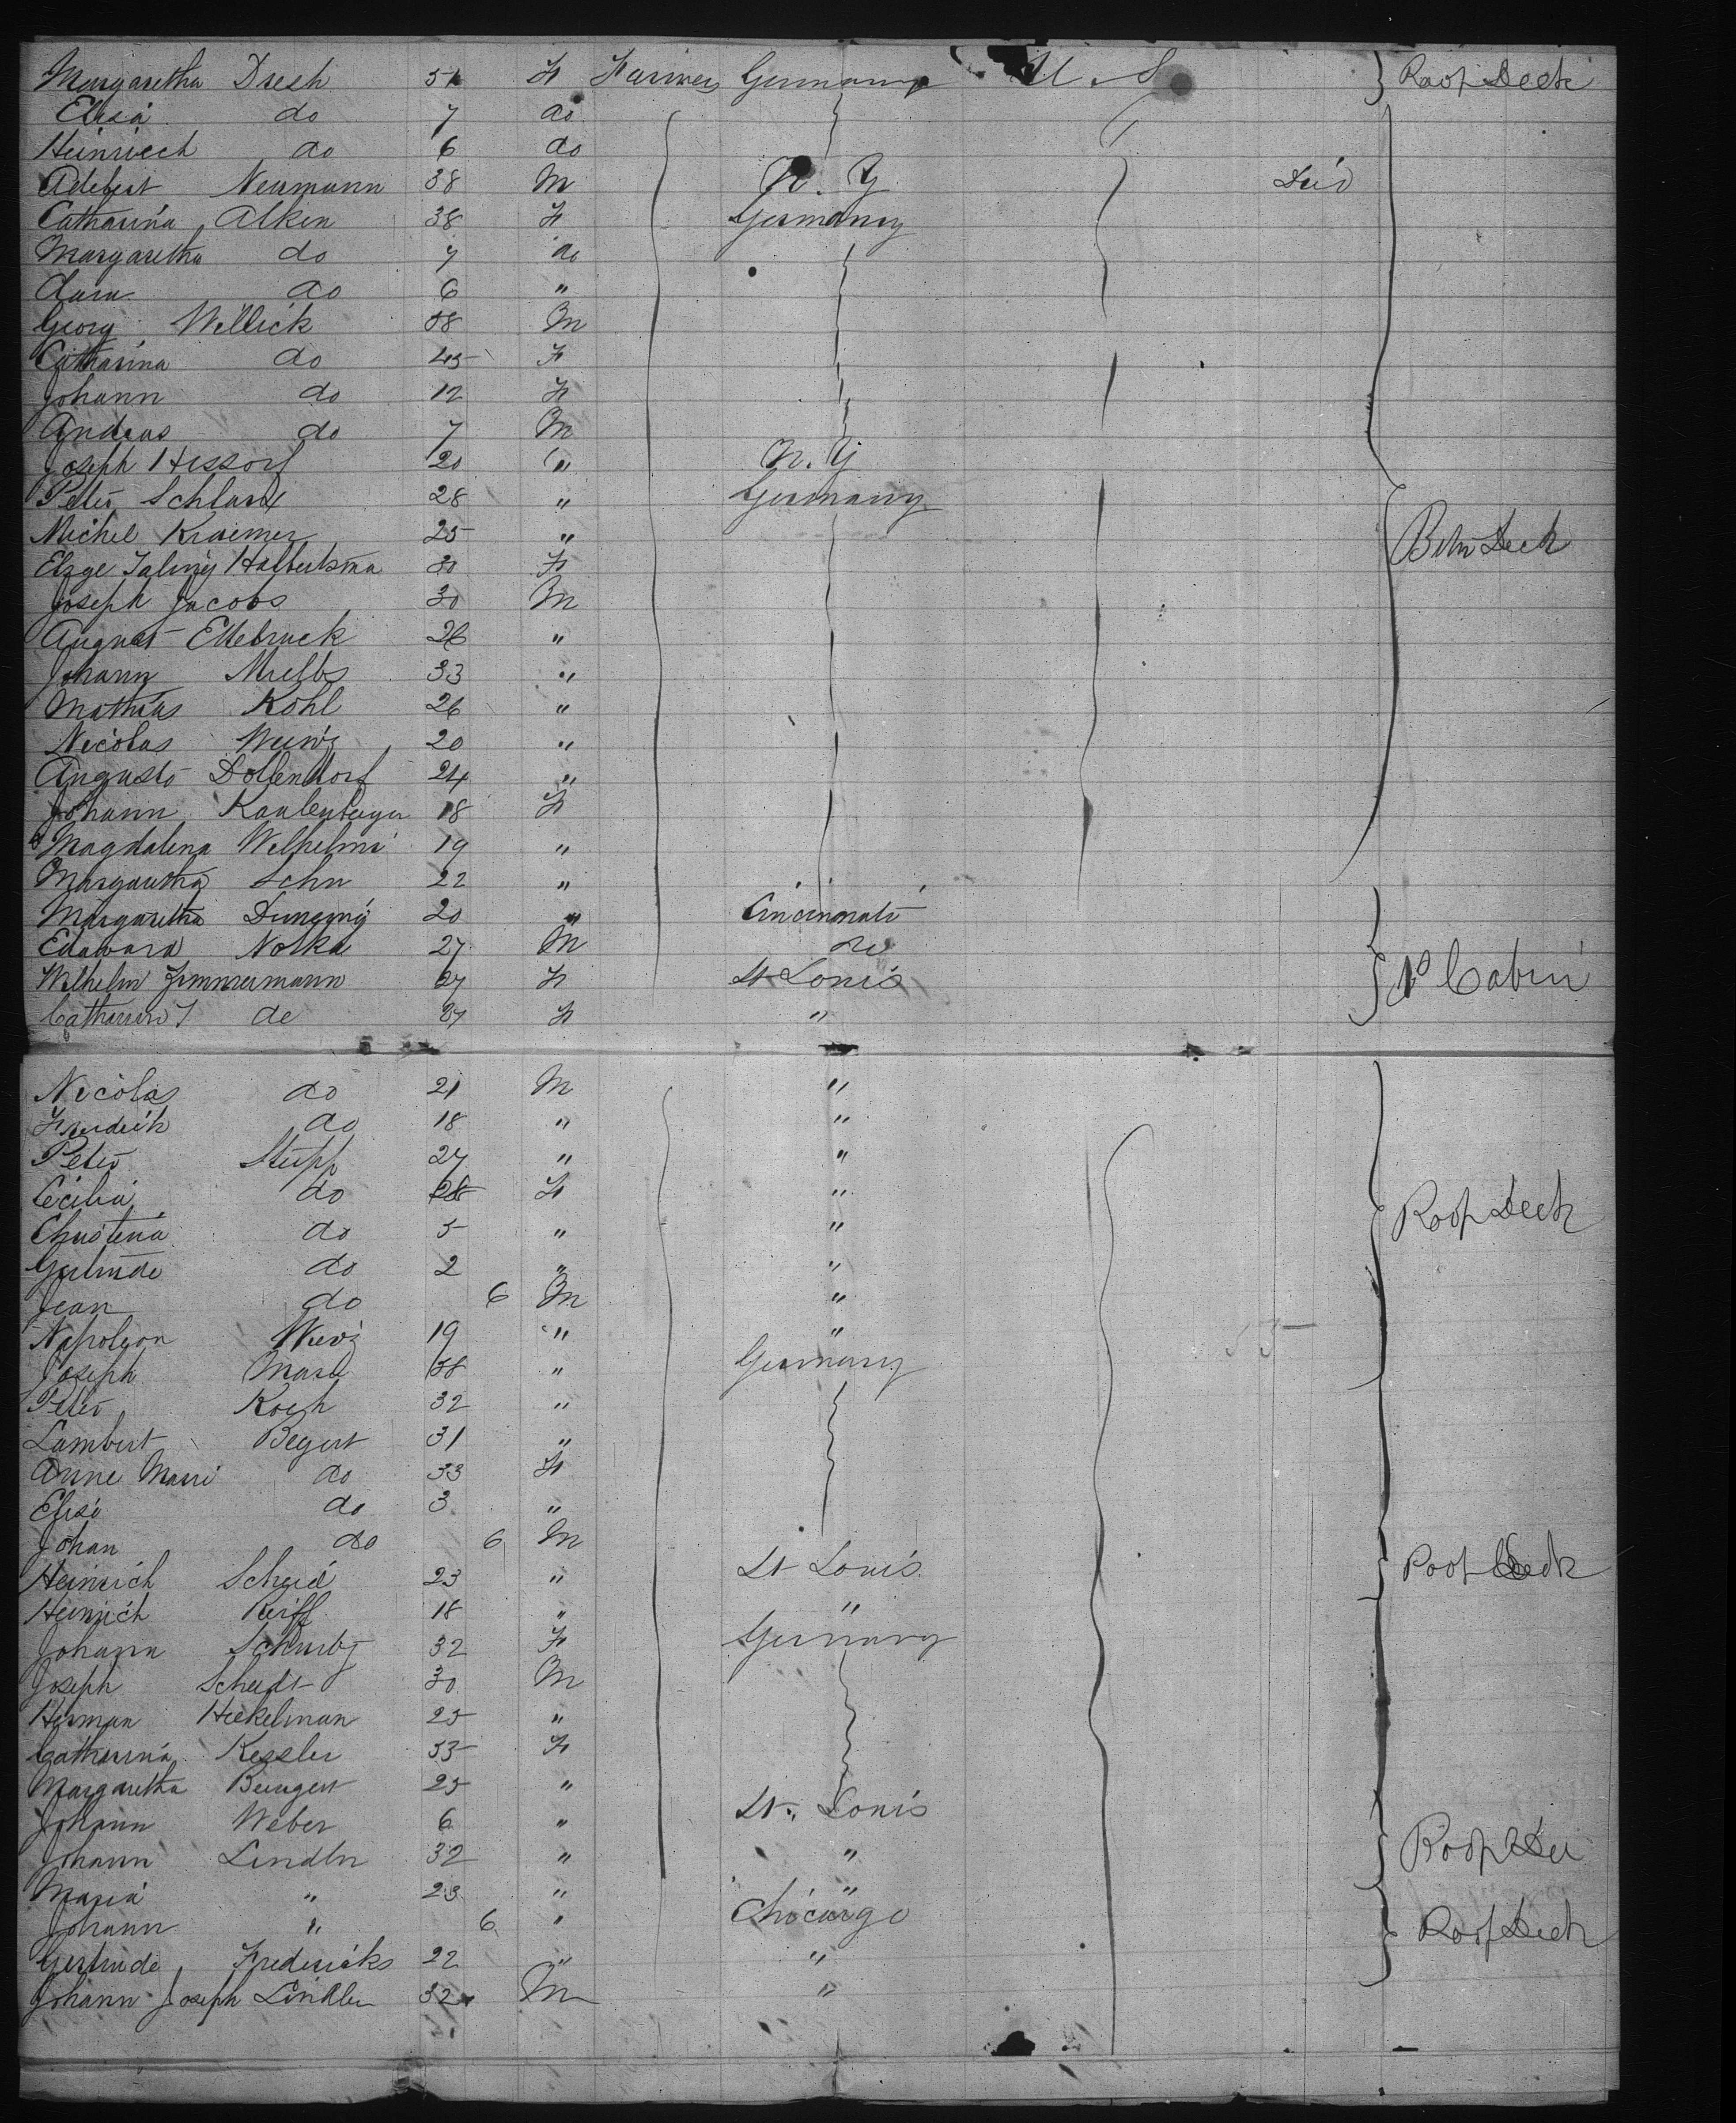 Margaretha Dresh 51 F Farmer Germany U S Roof Deck
Elisa do 7 do
Heinriech do 6 do
Adelbert Neumann 38 M N. Y Died
Catharina Alken 38 F Germany
Margaretha do 7 do
Clara do 6 "
Georg Wellick 58 M
Catharina do 45 F
Johann do 12 F
Andreas do 7 M
Joseph Hessorf 20 " N. Y
Peter 28 " Germany
Michel Kraemer 25 " Betw Deck
Halbertsma F
Joseph Jacobs 30 M
August Ellebruck 26 "
Johann 33 "
Mathias Kohl 26 "
Nicolas 20 "
Augusto Dollendorf 24 "
Johann Kaulenberger 18 F
Magdalena Wilhelmi 19 "
Margaretha Schn 22 "
Margaretha 20 " Cincinnati
Edawara Nolka 27 M do
Wilhelm Zimmermann 27 F St Louis 1s Cabin
de 27 F "
Nicolas do 21 M "
Fredrich do 18 " "
Peter Stupp 27 " "
Cecilia do 28 F " Roof Deck
Christina do 5 " "
Gertrude do 2 " "
Jean do 6 M "
Napoleon 19 " "
Joseph 38 " Germany
Peter Koch 32 "
Lambert Begert 31 "
Anne Marri do 33 F
Elise do 3 "
Johan do 6 M
Heinrich Scheid 23 " St Louis Roof Deck
Heinrich Reiff 18 " "
Johann 32 F Germany
Joseph Scheidt 30 M
Herman Heckelman 25 "
Catharina Kessler 33 F
Margaretha Bungert 25 "
Johann Weber 6 " St. Louis
Johann Lindln 32 " " Roof Dec
Maria " 23 " "
Johann " 6 " Chicargo Roof Deck
Gertrude Fredericks 22 " "
Johann Joseph Lindler 32 M "